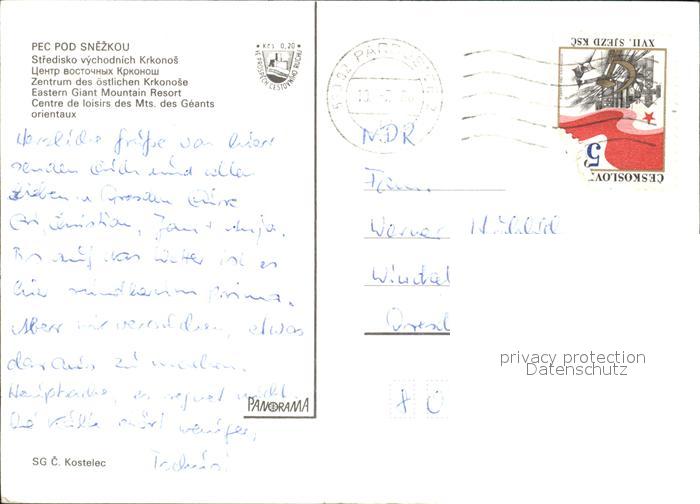 PEC POD SNĚŽKOU
Středisko východních Krkonoš
Центр восточных Крконош
Zentrum des östlichen Krkonoše
Eastern Giant Mountain Resort
Centre de loisirs des Mts. des Géants
orientaux
Kčs 0,20
VE PROSPĚCH CESTOVNÍHO RUCHU
Herzliche Grüße von hier
senden Dich und allen
Lieben in Dresden Eure
Christian, Jana + Anja.
Bis auf das Wetter ist es
hier rundherum prima.
Aber wir versuchen, etwas
daraus zu machen.
Hauptsache, es regnet nicht.
Die Kälte stört weniger.
Tschüs!
PANORAMA
SG Č. Kostelec
XVII. SJEZD KSČ
5
ČESKOSLOV
NDR
Werner
privacy protection
Datenschutz